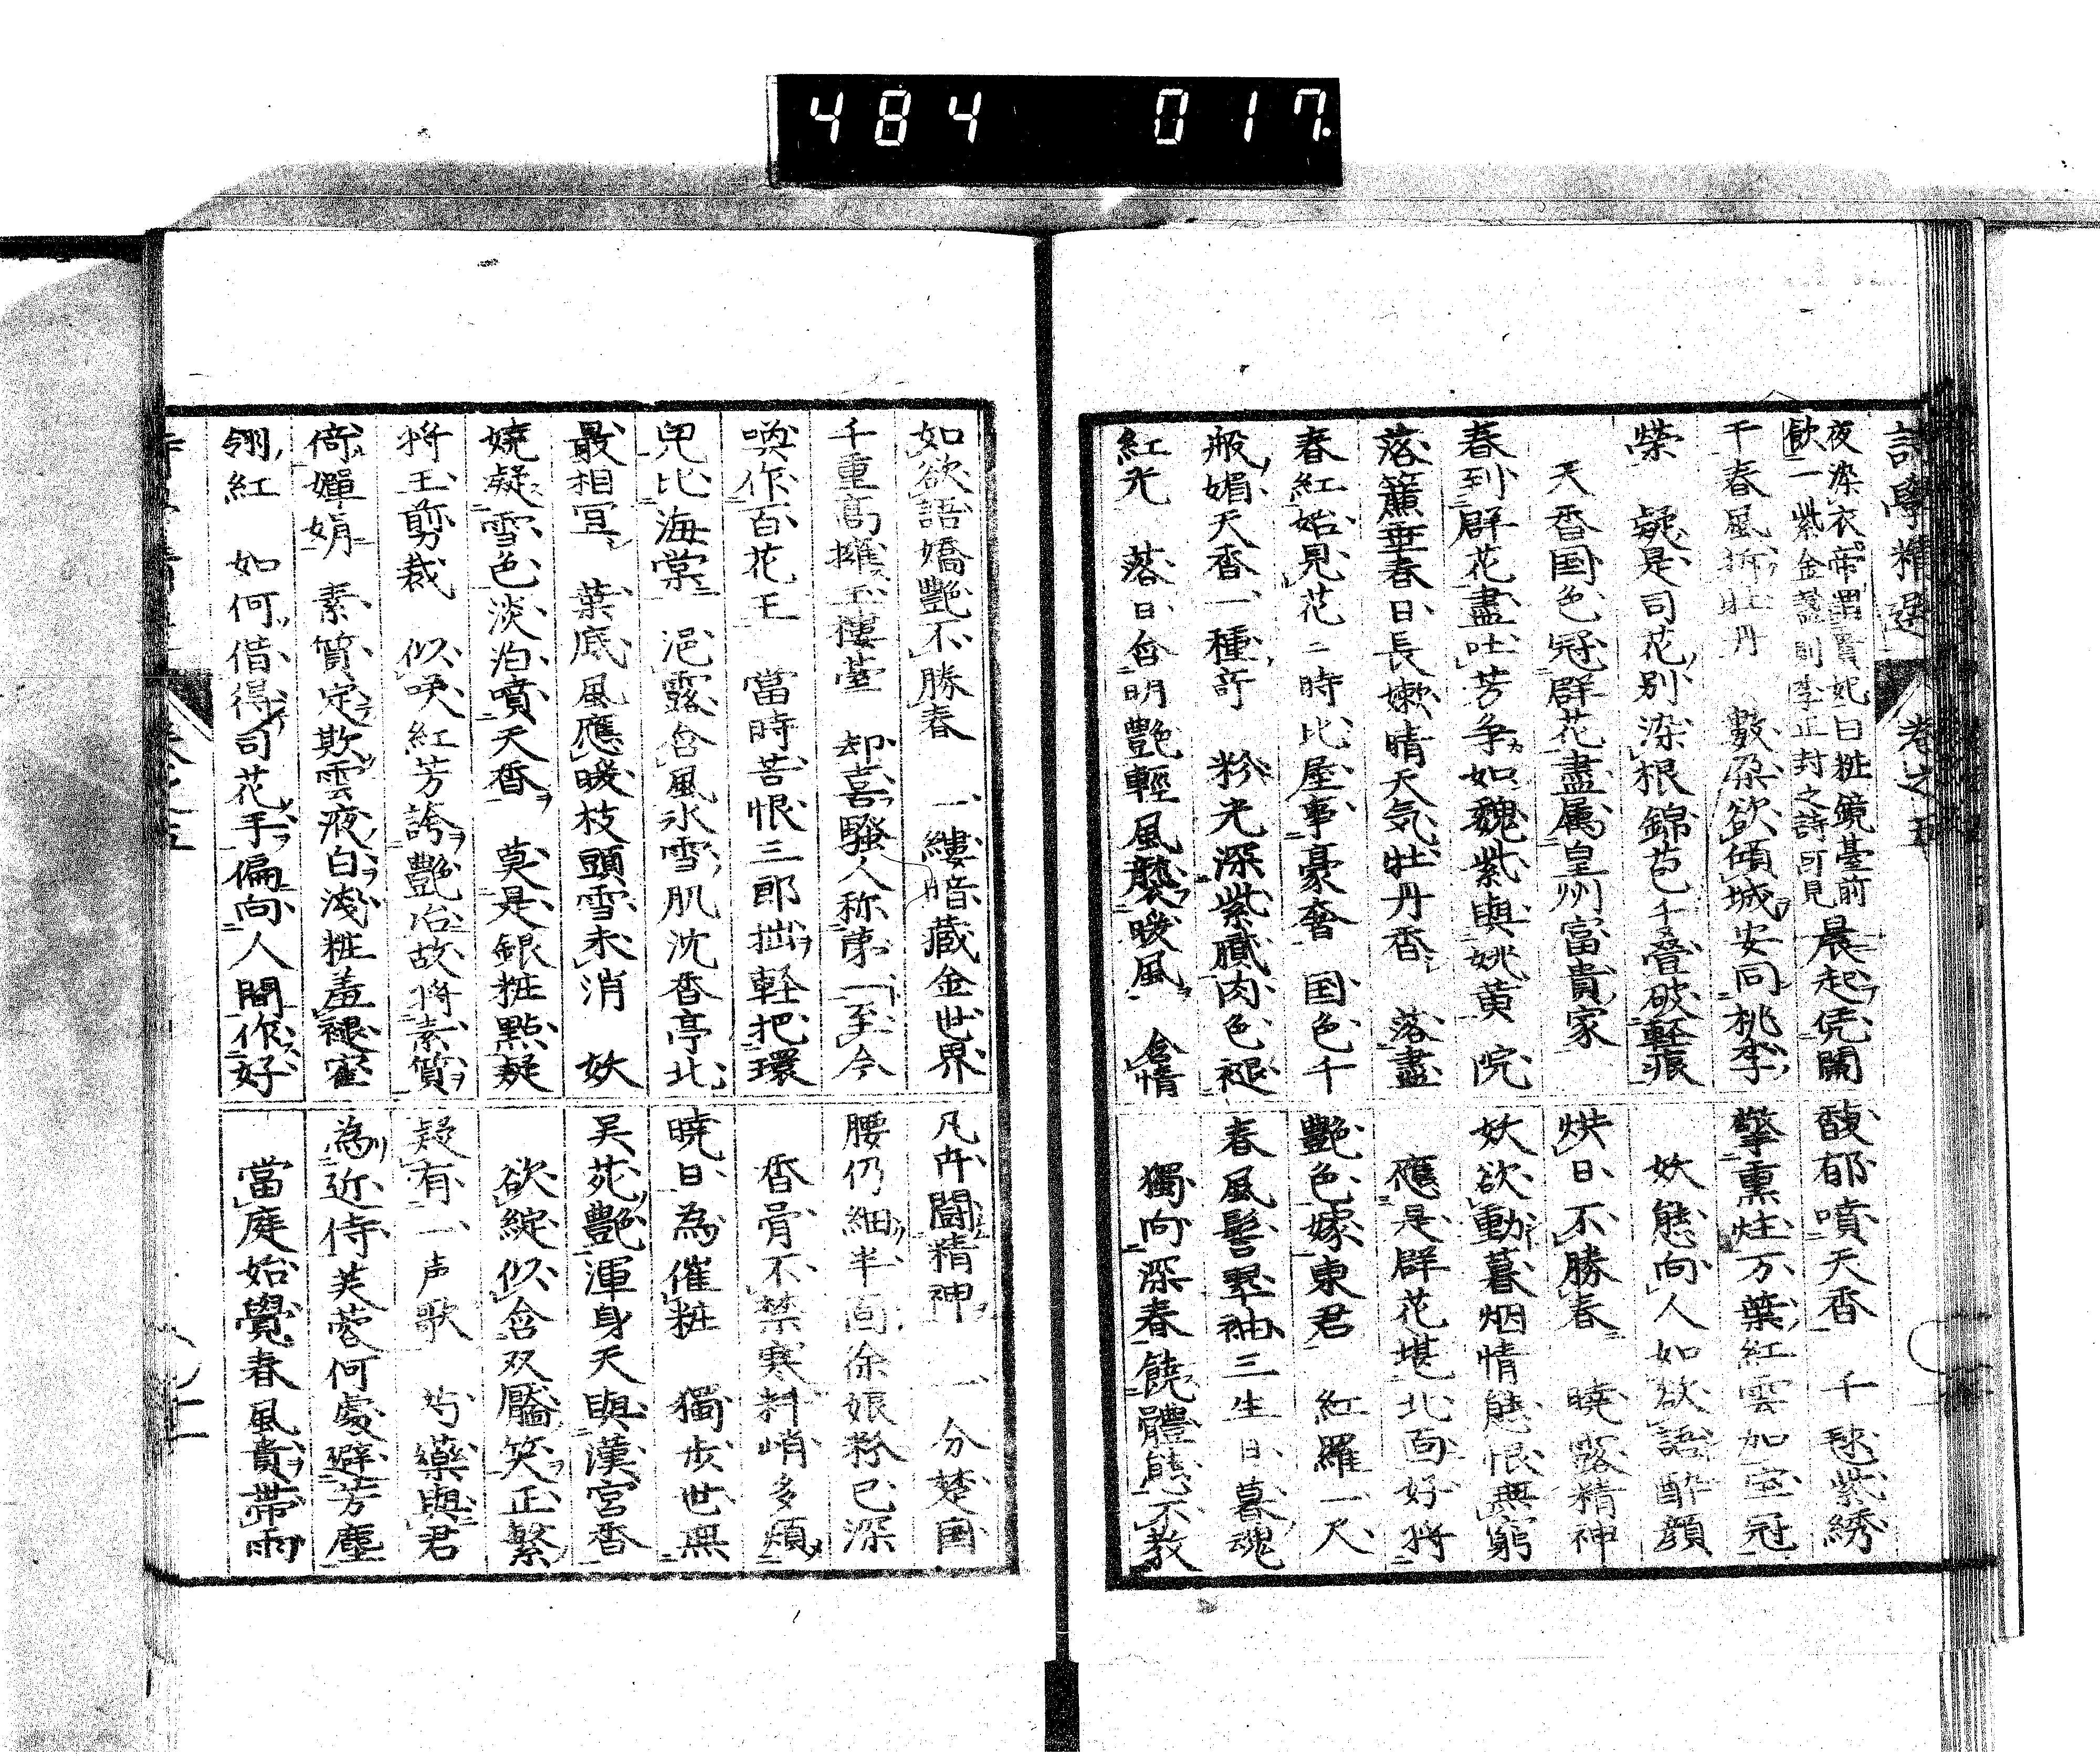 484 017.
詩學精選 卷之五
夜染衣帝謂貴妃曰粧鏡臺前
飲一紫金盞則李正封之詩可見
晨起凭闌
馥郁噴天香 千毬紫綉
千春風拆牡丹 數朶欲傾城安同桃李
擎熏炷万葉紅雲加宝冠
榮 疑是司花別染根錦苞千疊破輕痕
妖態向人如欲語醉顔
天香国色冠群花盡属皇州富貴家
烘日不勝春 曉露精神
春到群花盡吐芳争如魏紫與姚黄 院
妖欲動暮烟情態恨無窮
落簾垂春日長嫩晴天気牡丹香 落盡
應是群花堪北面好将
春紅始見花二時比屋事豪奢 国色千
艶色嫁東君 紅羅一尺
般媚天香一種 粉光深紫膩肉色褪
春風髻翠袖三生日暮魂
紅光 落日含明艶輕風襲暖風 含情
獨向深春饒體態不教
如欲語嬌艶不勝春 一縷暗藏金世界
凡卉闘精神 一分楚国
千重高擁玉樓臺 却喜騒人称第一至今
腰仍細半面徐娘粉已深
喚作百花王 當時苦恨三郎拙輕把環
香骨不禁寒料峭多煩
兒比海棠 浥露含風氷雪肌沈香亭北
曉日為催粧 獨步世無
最相宜 葉底風應暖枝頭雪未消 妖
吴苑艶渾身天與漢宮香
嬈凝雪色淡泊噴天香 莫是銀粧點疑
欲綻似含双靨笑正繁
将玉剪裁 似咲紅芳誇艶冶故将素質
疑有一声歌 芍藥與君
倚嬋娟 素質定欺雲液白淺粧羞褪
為近侍芙蓉何處避芳塵
翎紅 如何借得司花手偏向人間作好
當庭始覺春風貴帶雨